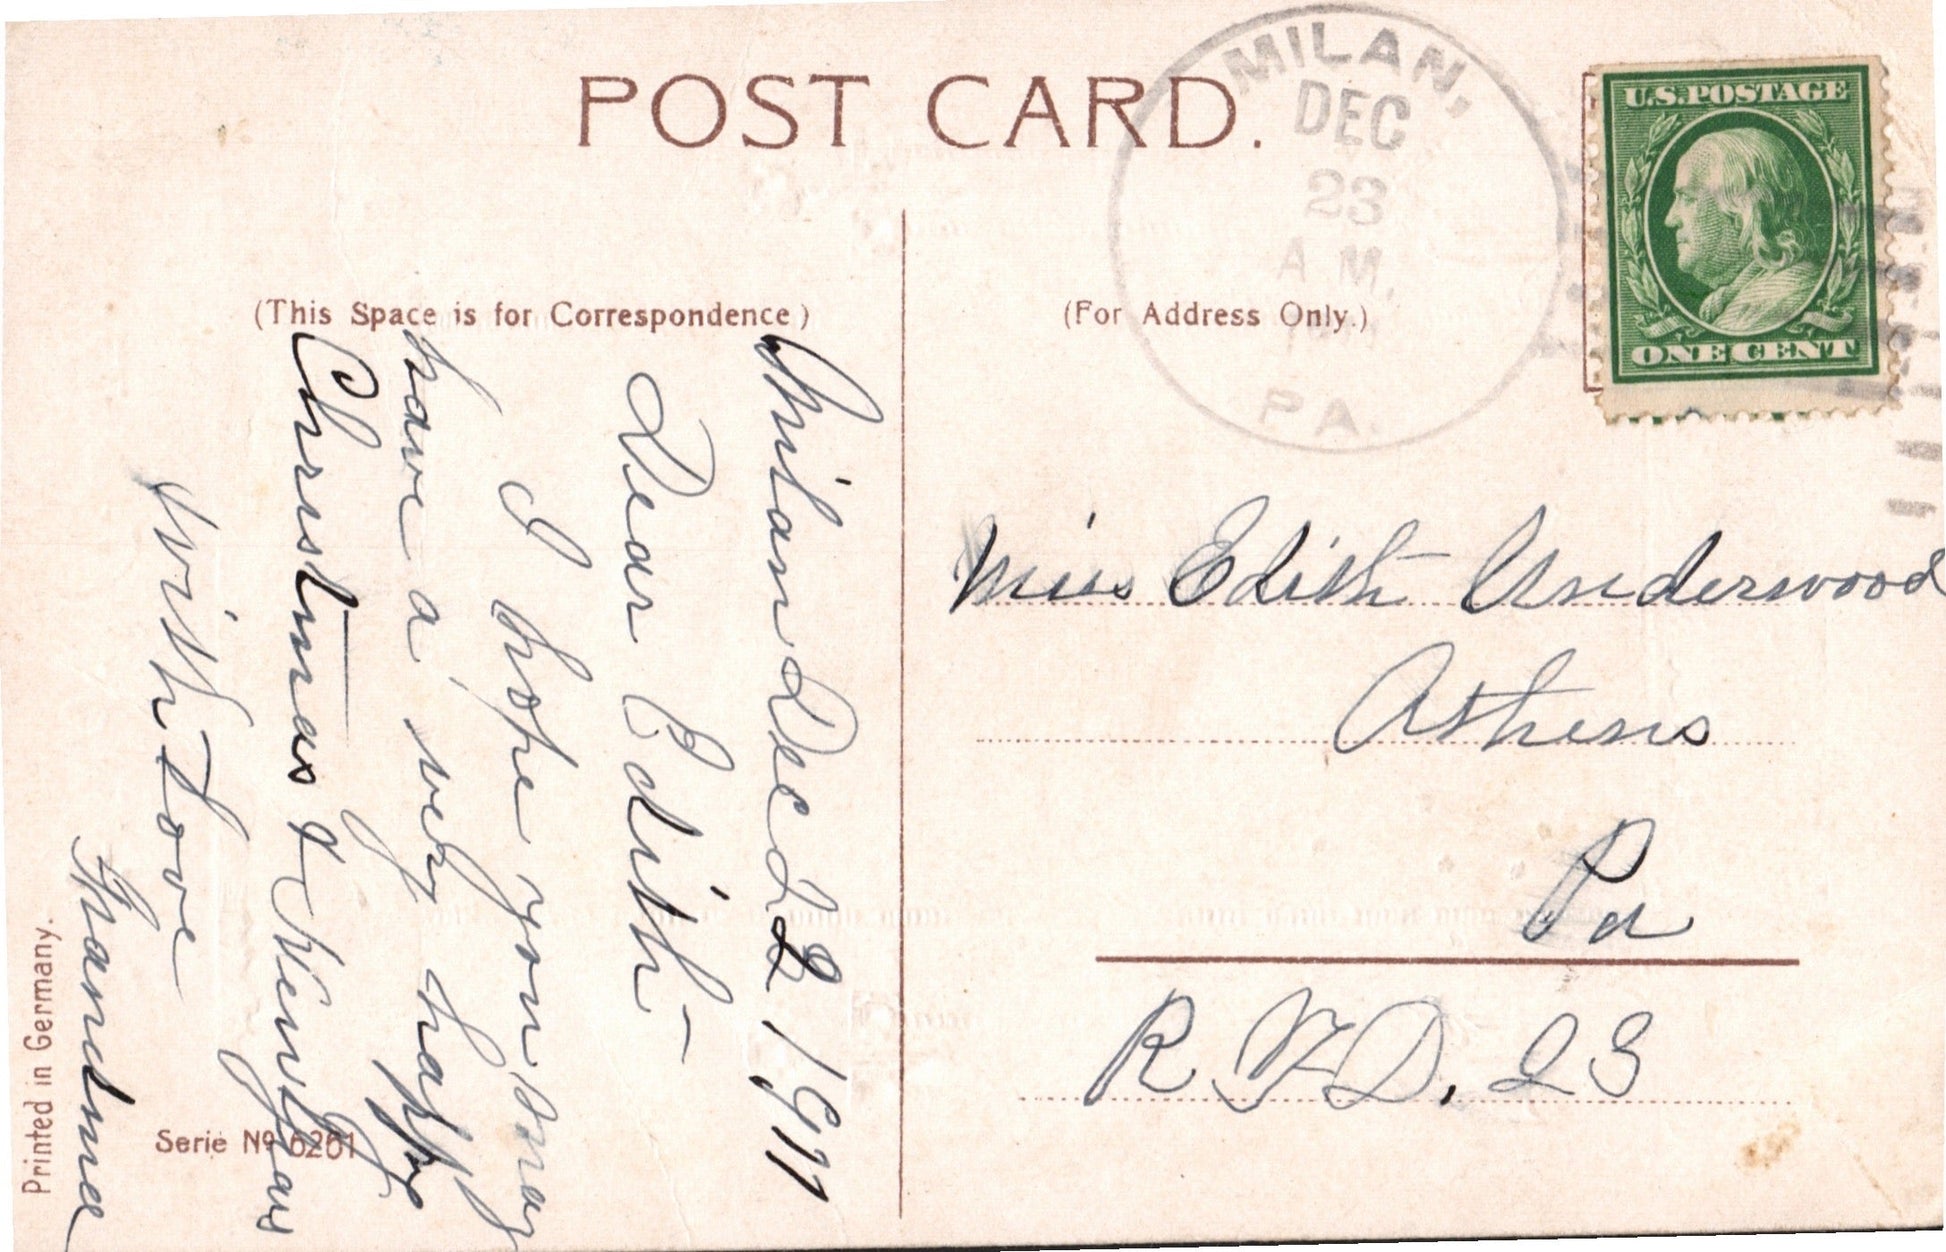 POST CARD.
MILAN,
DEC
23
A.M.
PA.
U.S.POSTAGE
ONE CENT
(This Space is for Correspondence)
(For Address Only.)
Milan Dec 22 1911
Dear Edith -
I hope you may
have a very happy
Christmas & New Year
With Love
Grandma
Miss Edith Underwood
Athens
Pa
R. F. D. 23
Serie No 6261
Printed in Germany.